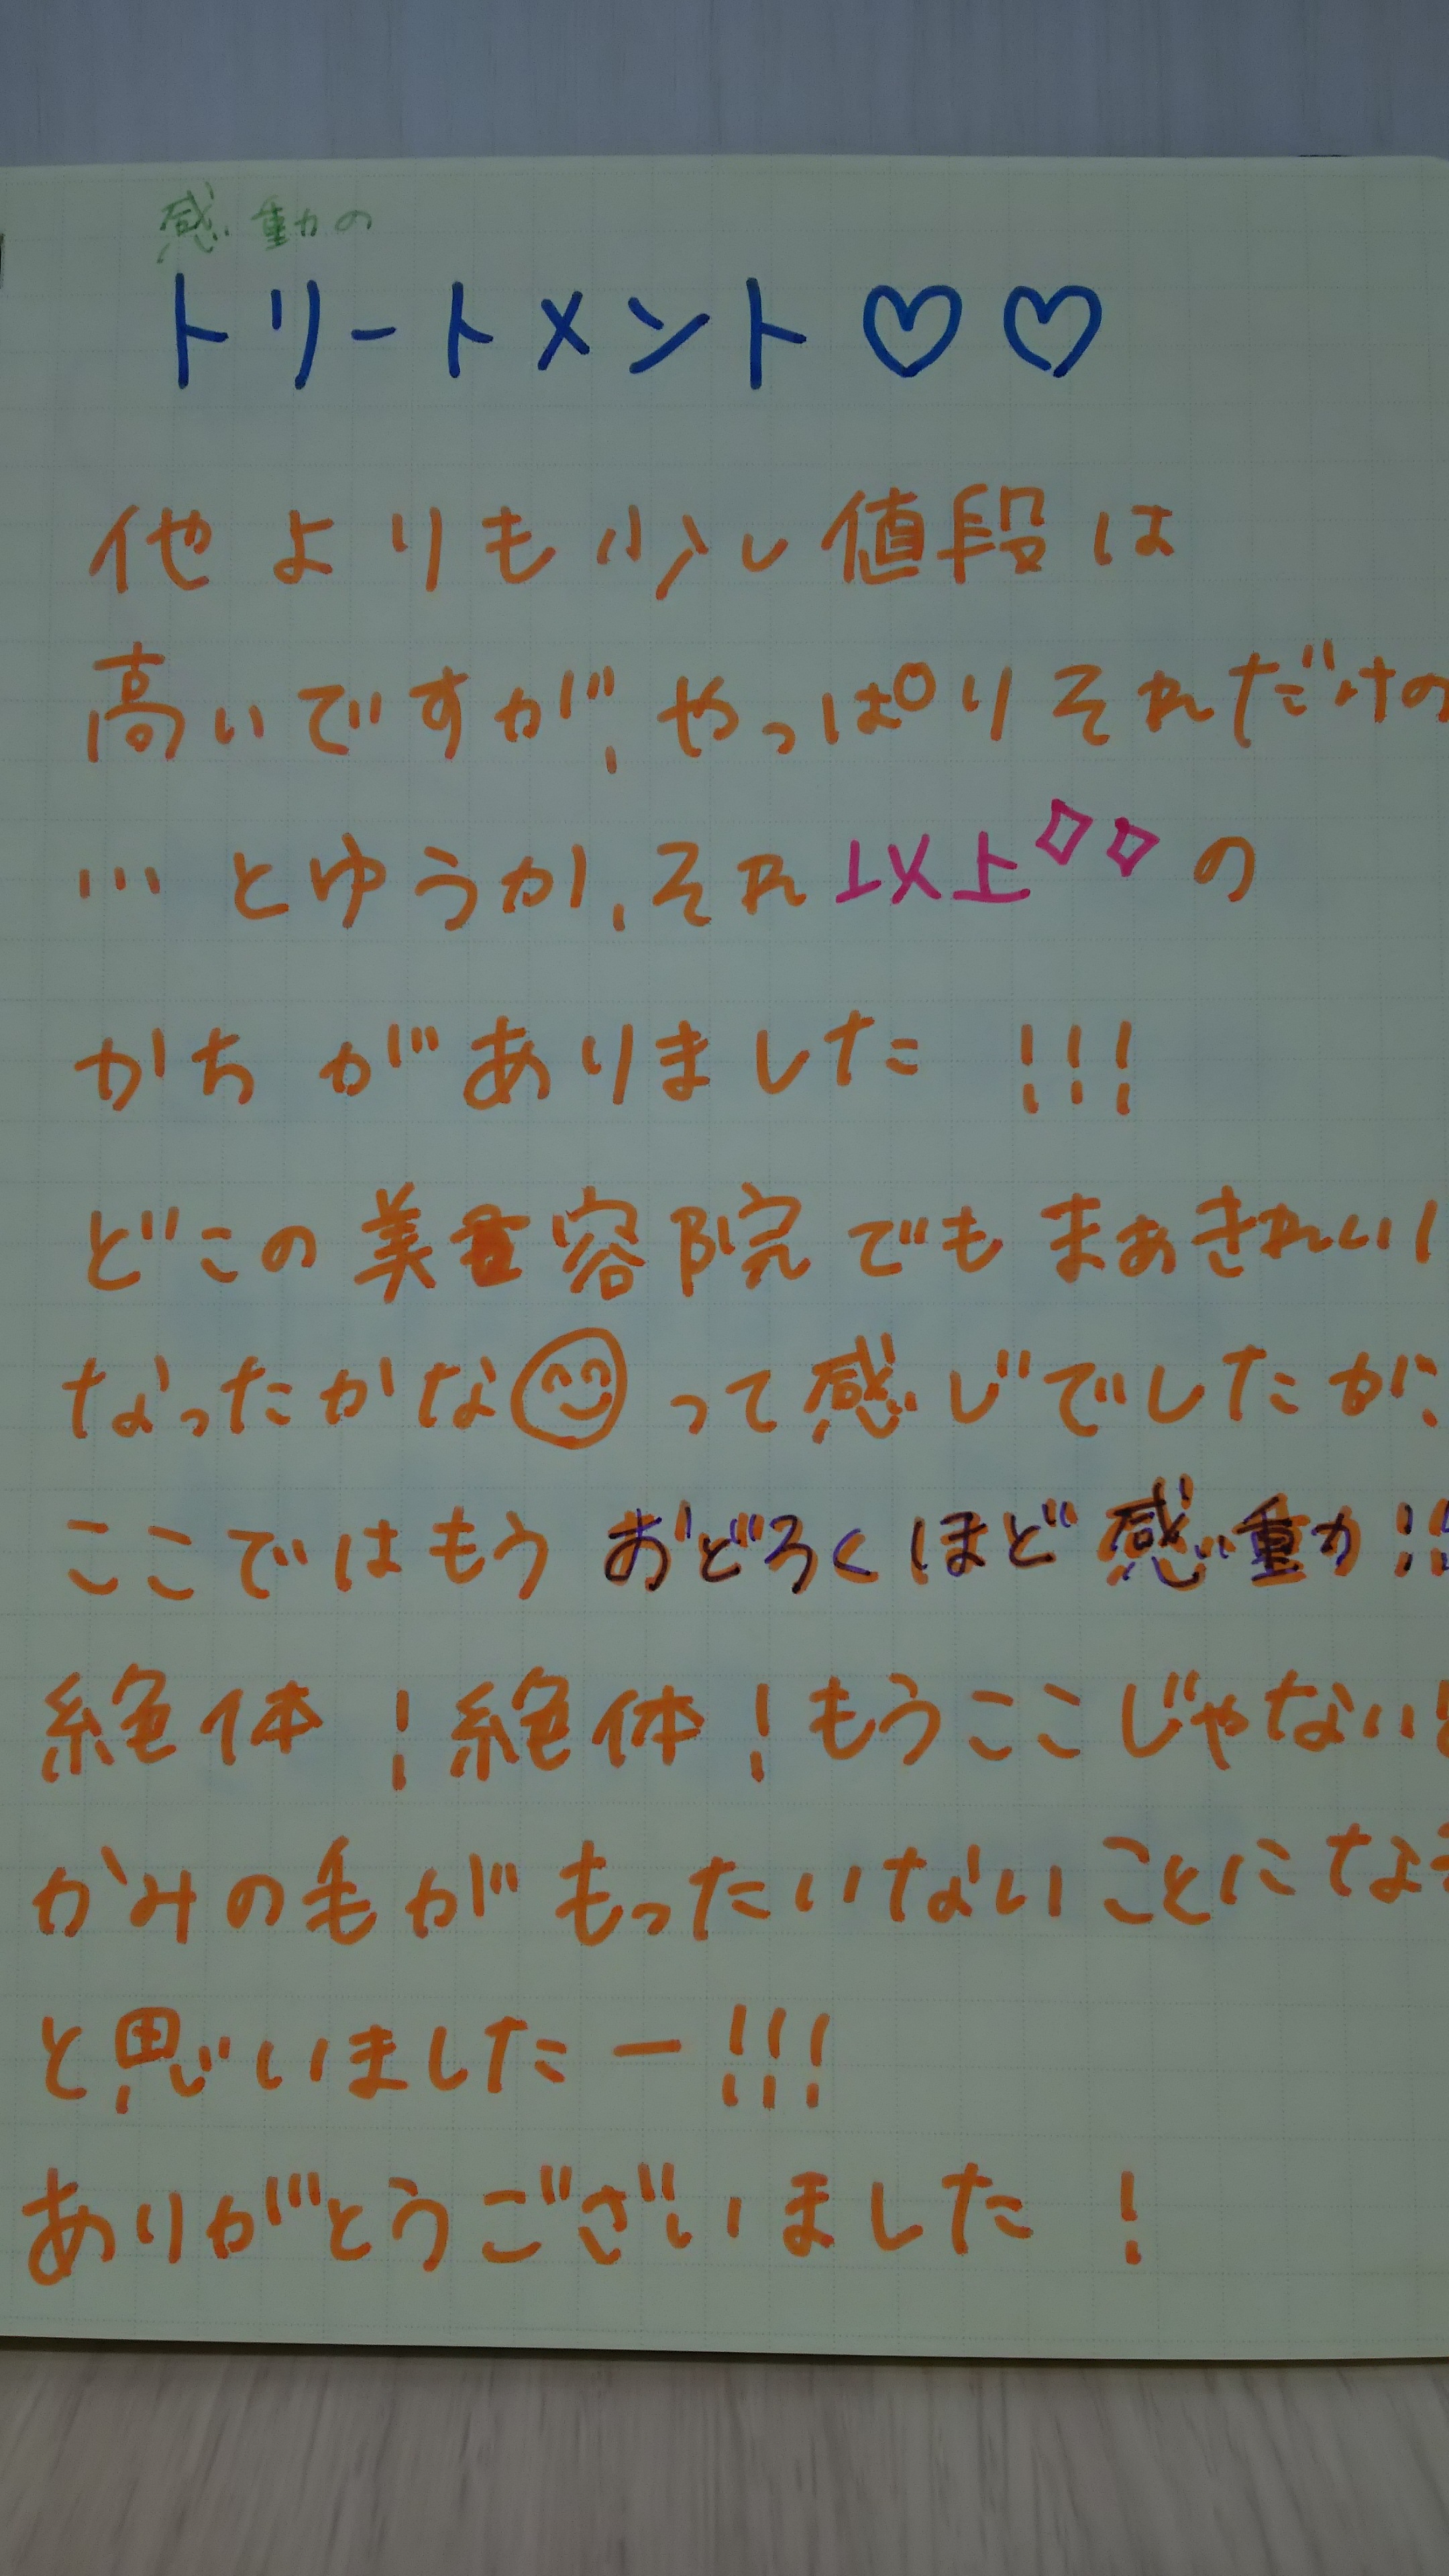 感動の
トリートメント♡♡
他よりも少し値段は
高いですが、やっぱりそれだけの
…とゆうか、それ以上◇◇の
かちがありました!!!
どこの美容院でもまぁきれい
なったかな😊って感じでしたが、
ここではもうおどろくほど感動!!
絶体!絶体!もうここじゃない
かみの毛がもったいないことにな
と思いましたー!!!
ありがとうございました!